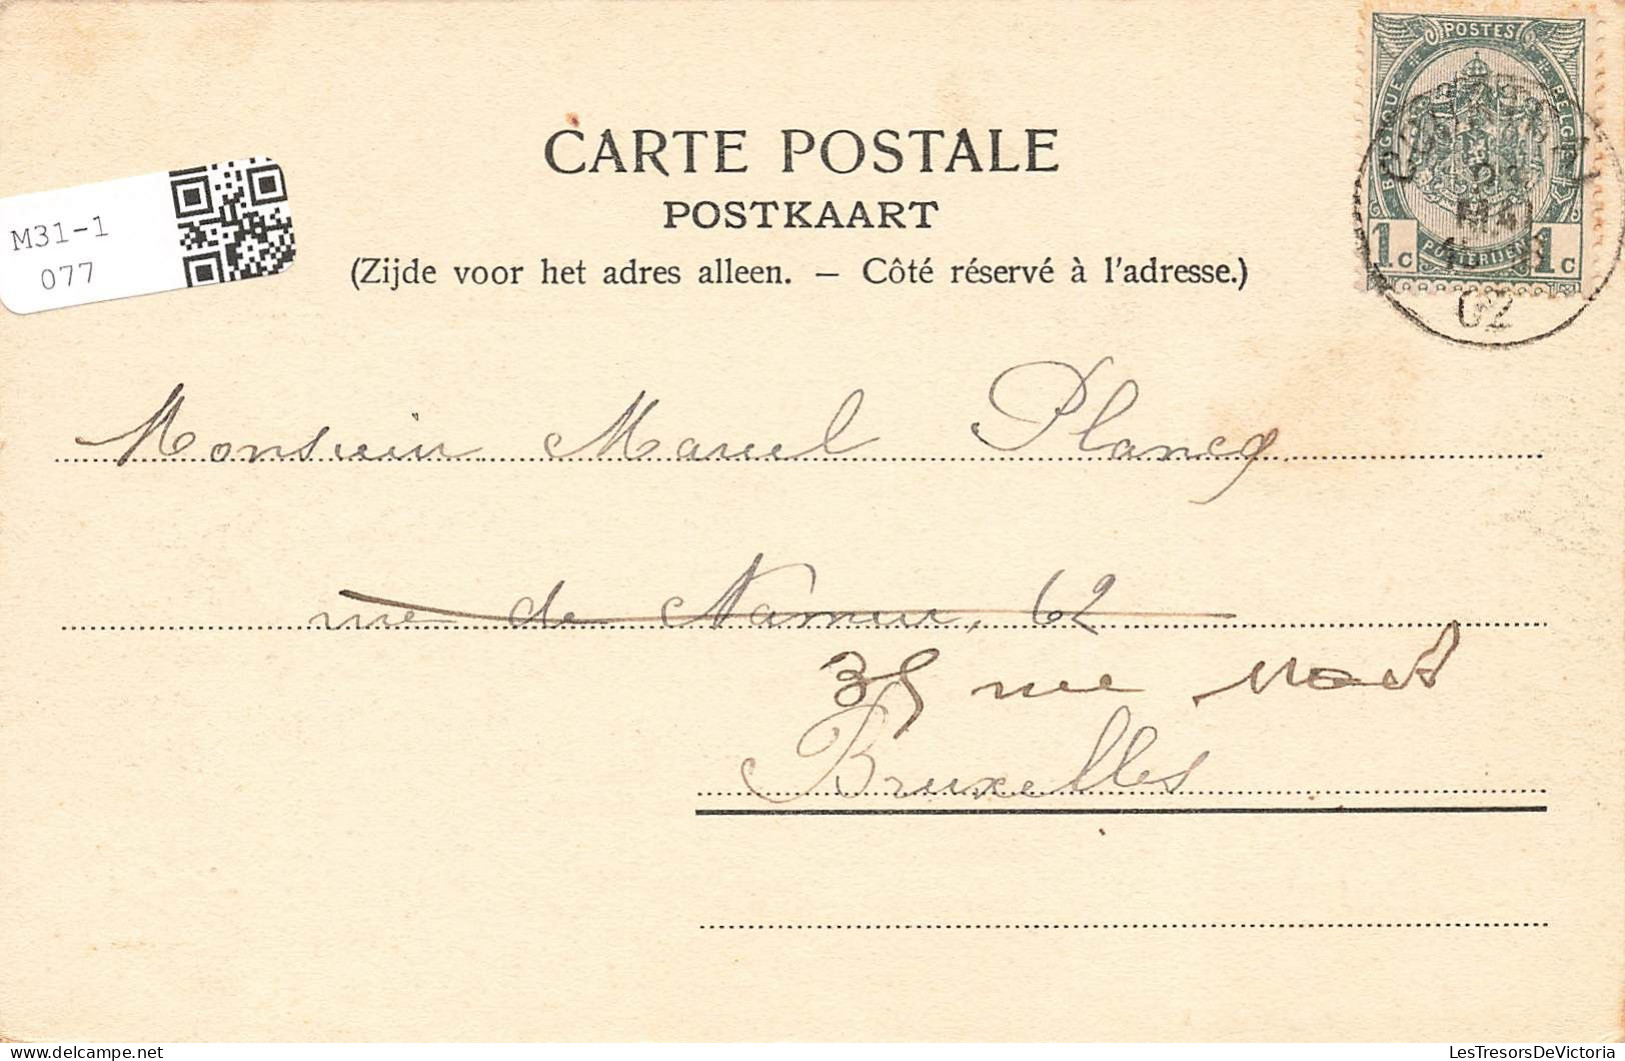 CARTE POSTALE
POSTKAART
(Zijde voor het adres alleen. — Côté réservé à l'adresse.)
M31-1
077
POSTES
BELGIQUE BELGIË
1c POSTERIJEN 1c
MAI
02
Monsieur Marcel Plancq
rue de Namur, 62
35 rue
Bruxelles
LesTresorsDeVictoria.com